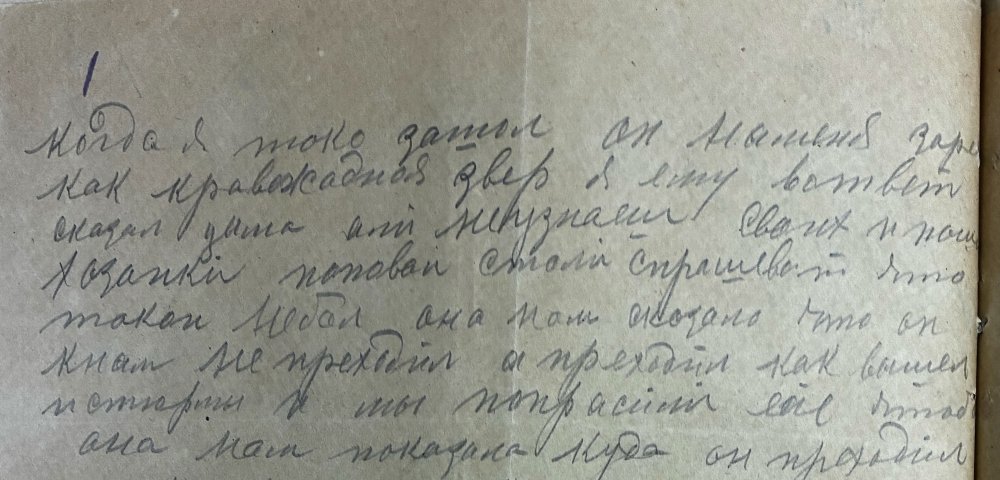 1
когда я токо зашол он на меня заре
как кровожадная звер я ему вответ
сказал цима али неузнаеш своих и пош
хозапки поповаи стали спрашеват што
такои небал она нам сказала што он
кнам не преходил а преходил как вышел
истюрмы и мы попрасили ейе штоб
она нам показала куда он преходил